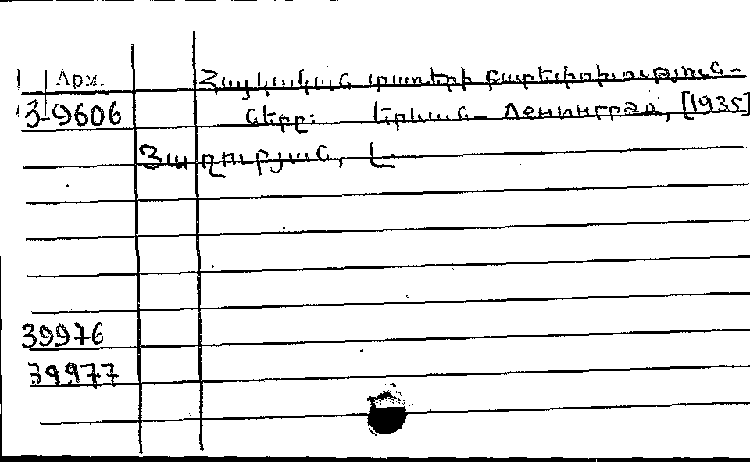 Арм. Հայկական տառերի բարեփոխություն-
3-9606 ները: Երևան - Ленинград, [1935]
Յաղուբյան, Լ.
39976
39977